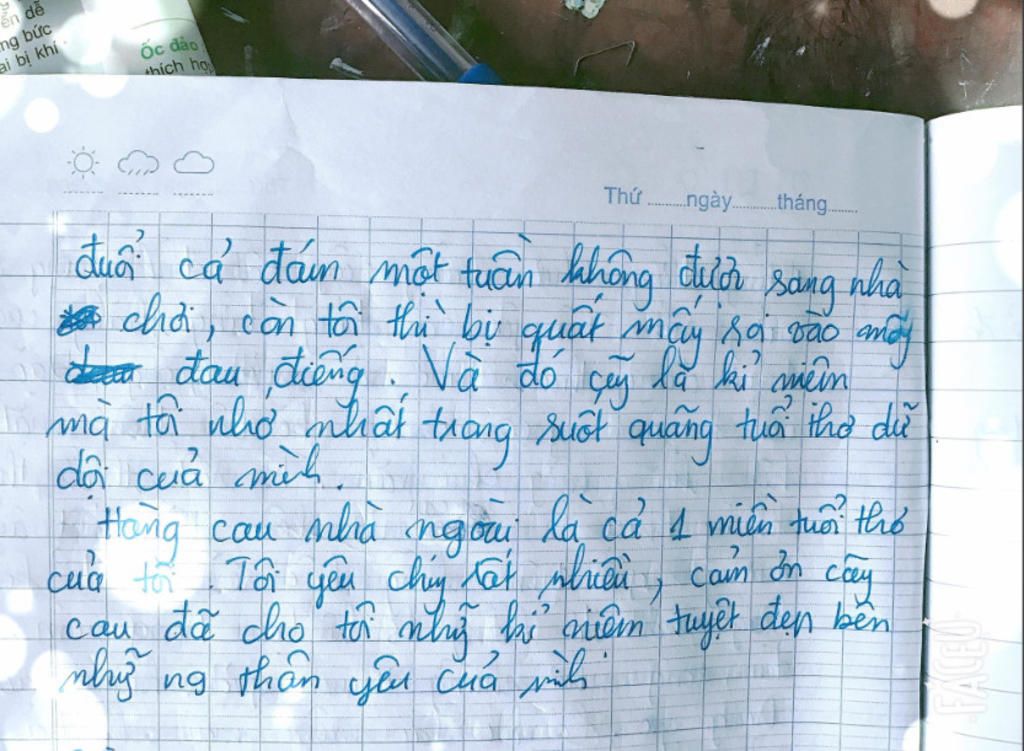 ển dễ
ng bức
ai bị khí
Ốc đảo
thích hợ
Thứ ngày tháng
đuổi cả đám một tuần không được sang nhà
chơi, còn tôi thì bị quất mấy roi vào mông
đau điếng. Và đó cũng là kỉ niệm
mà tôi nhớ nhất trong suốt quãng tuổi thơ dữ
dội của mình.
Hàng cau nhà ngoại là cả 1 miền tuổi thơ
của tôi. Tôi yêu chúng rất nhiều, cảm ơn cây
cau đã cho tôi những kỉ niệm tuyệt đẹp bên
những ng thân yêu của mình
FACEU